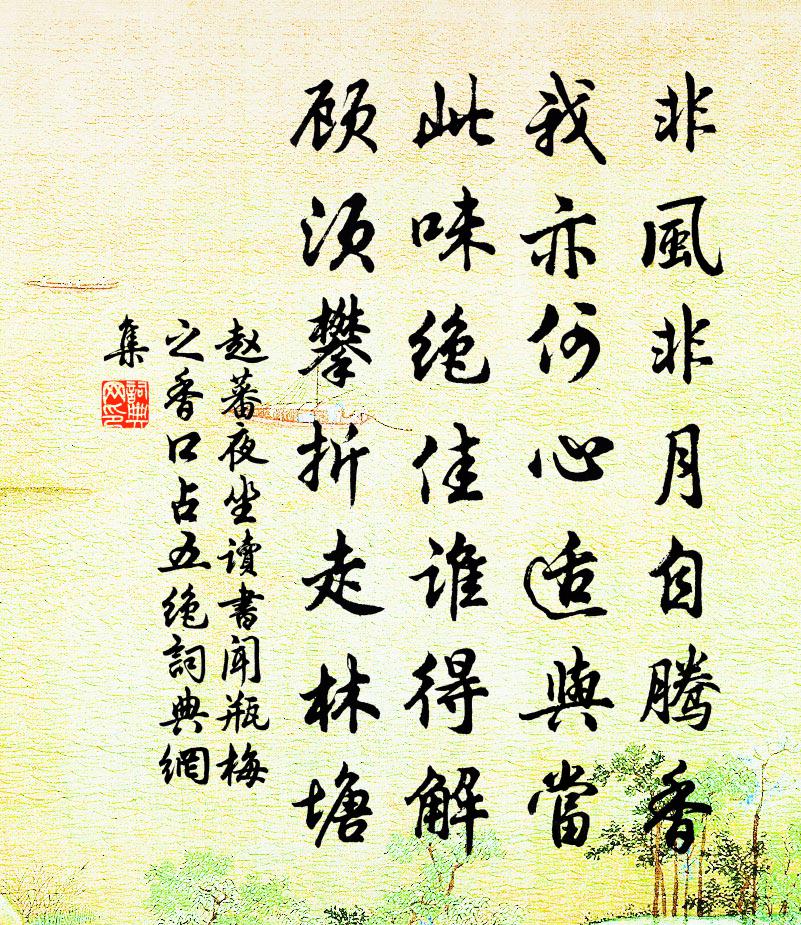 非風非月自騰香
我亦何心适與當
此味绝佳谁得解
顾须攀折走林塘
赵蕃夜坐讀書闻瓶梅
之香口占五绝詞典網
集
詞典
网印